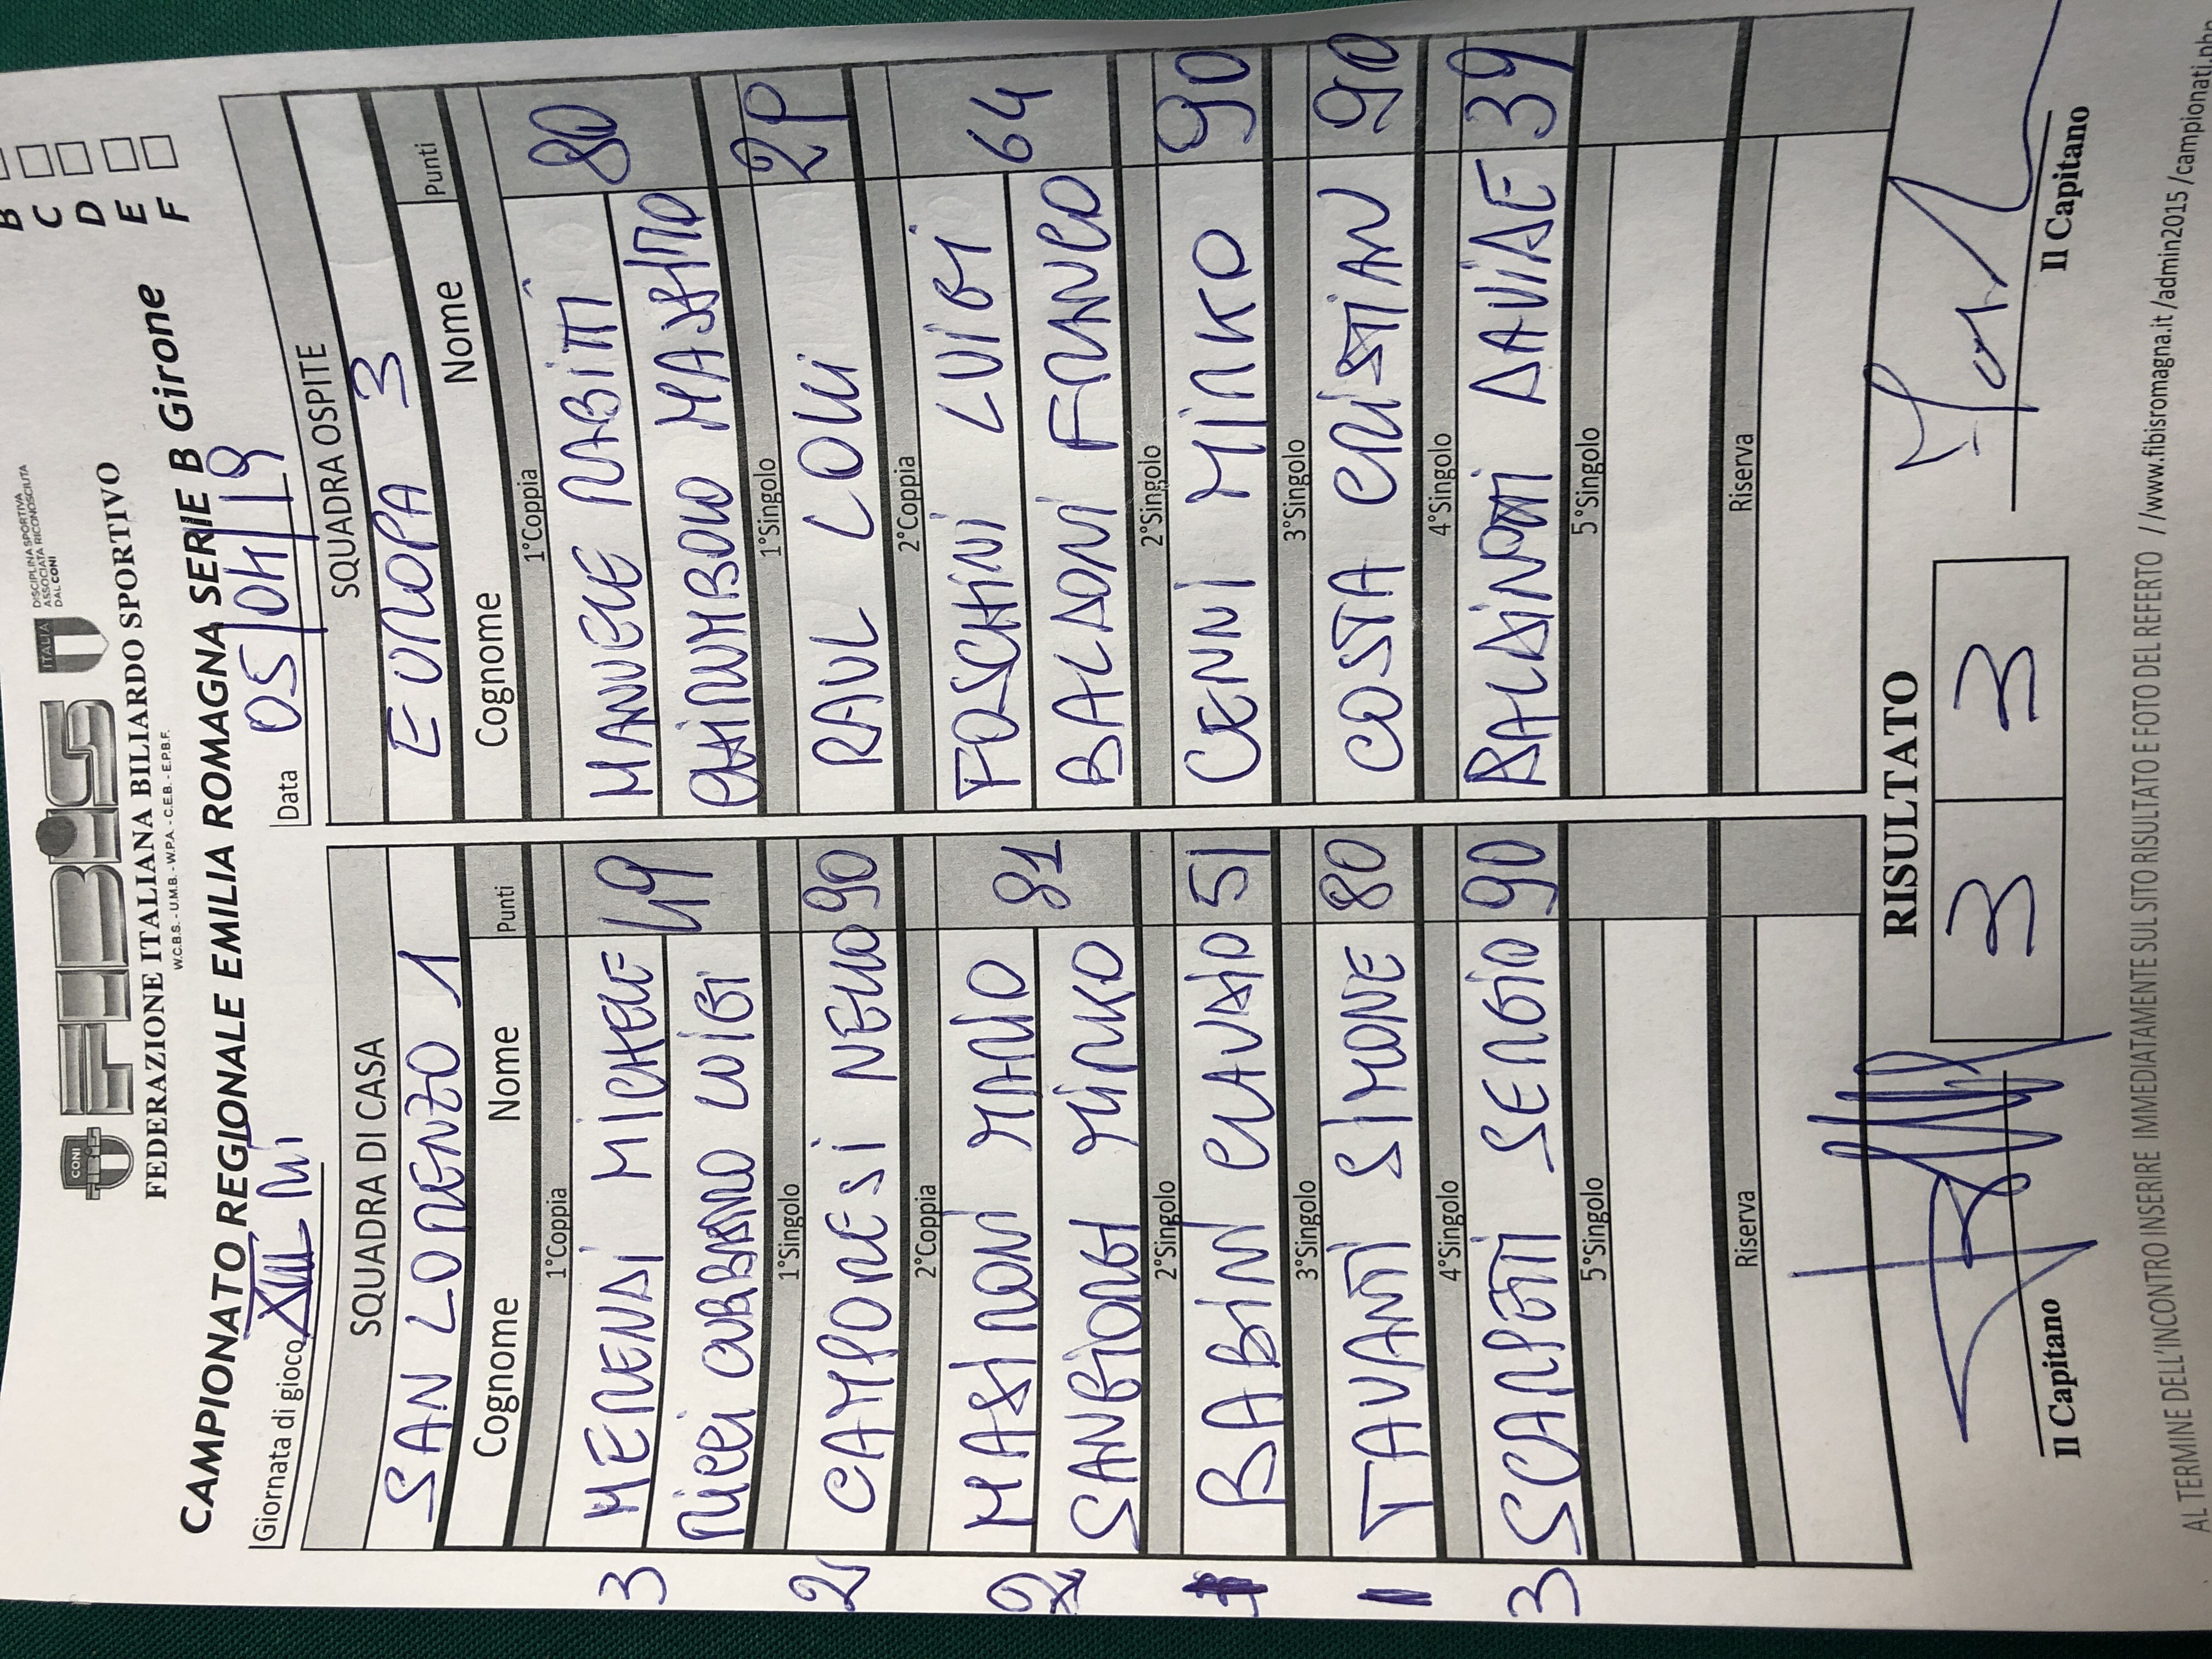 B
C
D
E
F
CONI
FIBIS
ITALIA
DISCIPLINA SPORTIVA
ASSOCIATA RICONOSCIUTA
DAL CONI
FEDERAZIONE ITALIANA BILIARDO SPORTIVO
W.C.B.S. - U.M.B. - W.P.A. - C.E.B. - E.P.B.F.
CAMPIONATO REGIONALE EMILIA ROMAGNA SERIE B Girone
Giornata di gioco
Data 05/04/19
SQUADRA DI CASA SQUADRA OSPITE
SAN LORENZO 1 EUROPA 3
Cognome Nome Punti Cognome Nome Punti
1°Coppia 1°Coppia
3 MERENDI MICHELE 49 MANUELE RABITTI 80
RICCI LUIGI MASSIMO
1°Singolo 1°Singolo
2 CAMPORESI NELLO 90 RAUL LOLLI
2°Coppia 2°Coppia
2 MASIRONI MARIO 81 FOSCHINI LUIGI 64
SANGIORGI MIRKO BALDONI FRANCO
2°Singolo 2°Singolo
BABINI 51 CENNI MIRKO 90
3°Singolo 3°Singolo
1 TAVANTI SIMONE 80 COSTA CRISTIAN 90
4°Singolo 4°Singolo
3 SCARPETTI SERGIO 90 39
5°Singolo 5°Singolo
Riserva Riserva
RISULTATO
3 3
Il Capitano Il Capitano
AL TERMINE DELL'INCONTRO INSERIRE IMMEDIATAMENTE SUL SITO RISULTATO E FOTO DEL REFERTO //www.fibisromagna.it /admin2015 /campionati.php